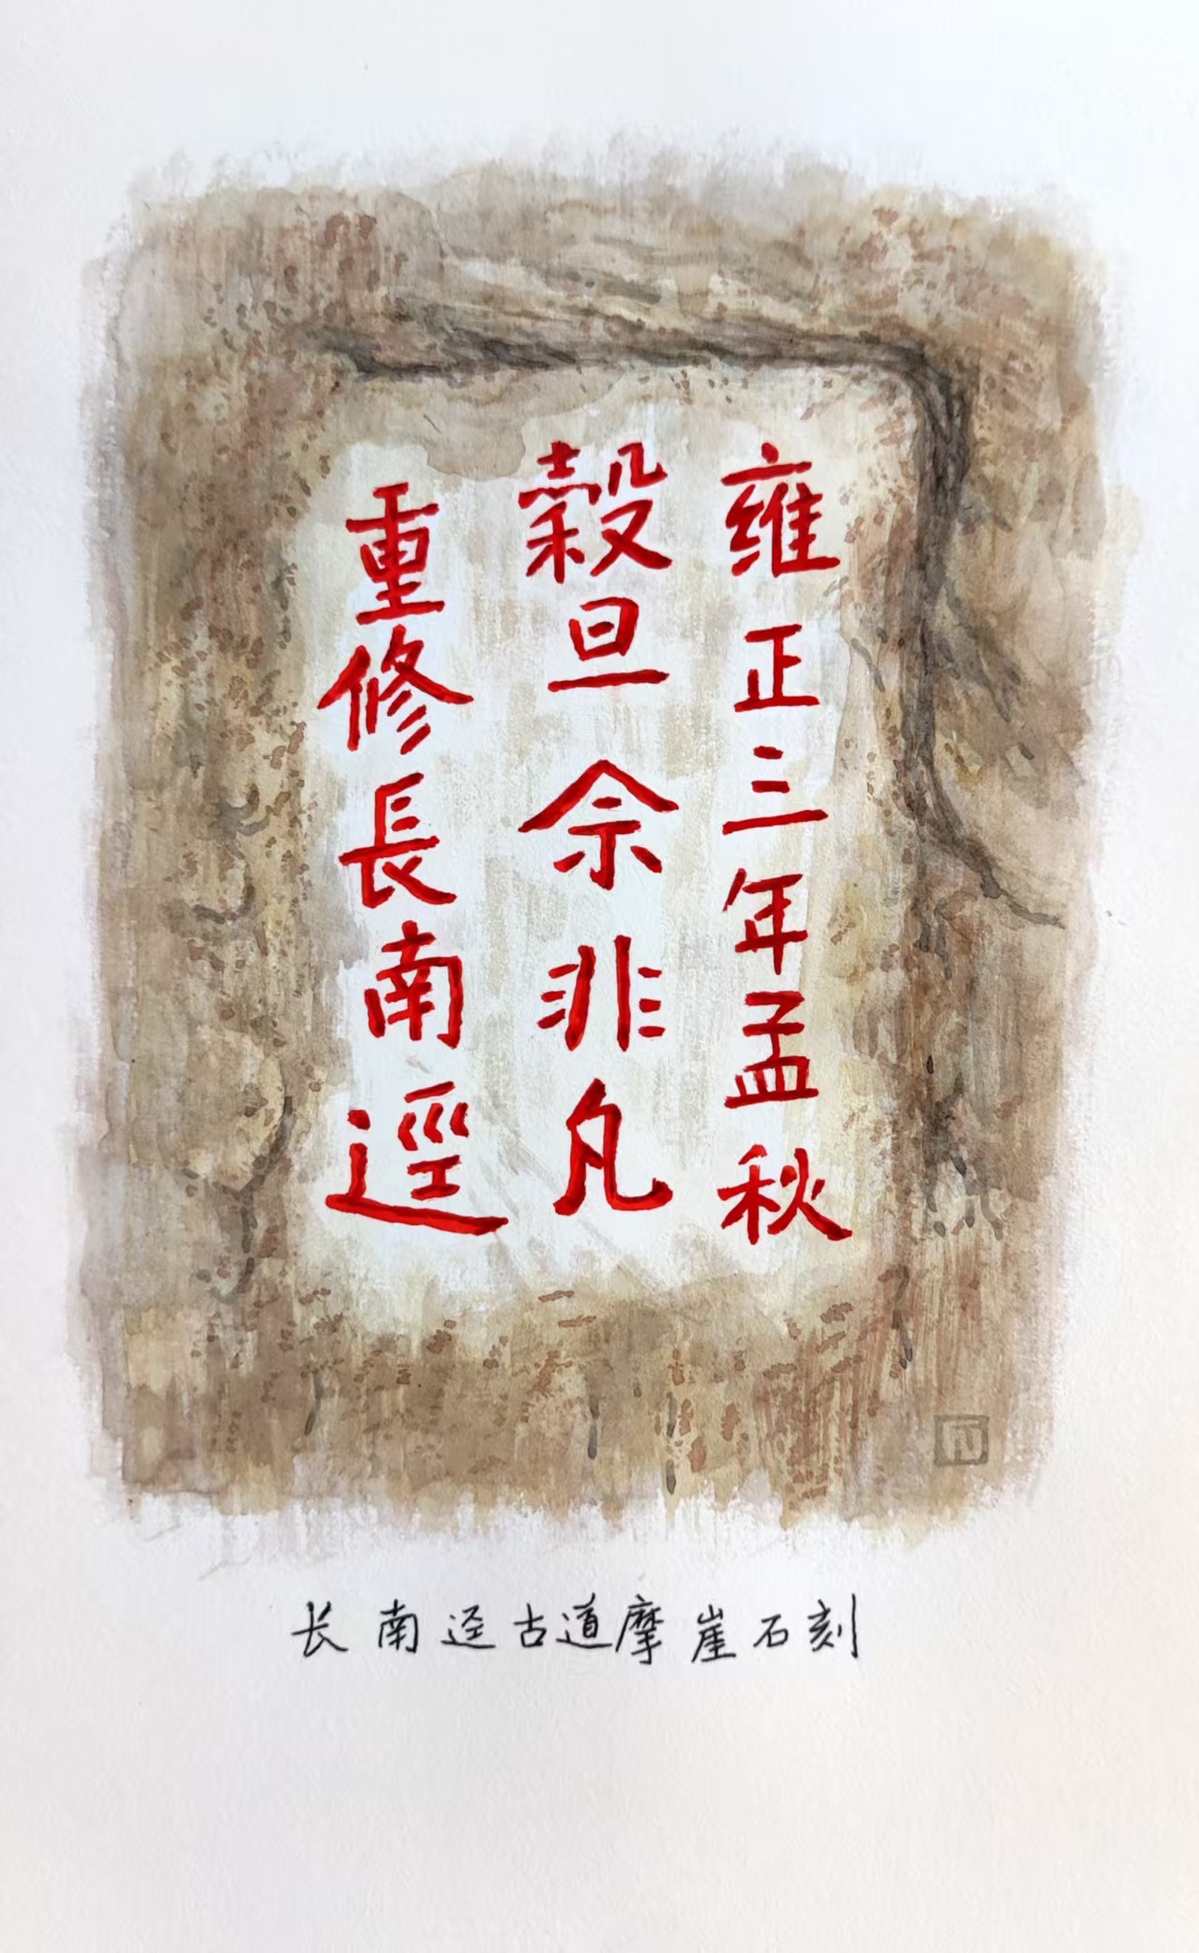 雍正三年孟秋
穀旦佘非凡
重修長南逕
长南迳古道摩崖石刻